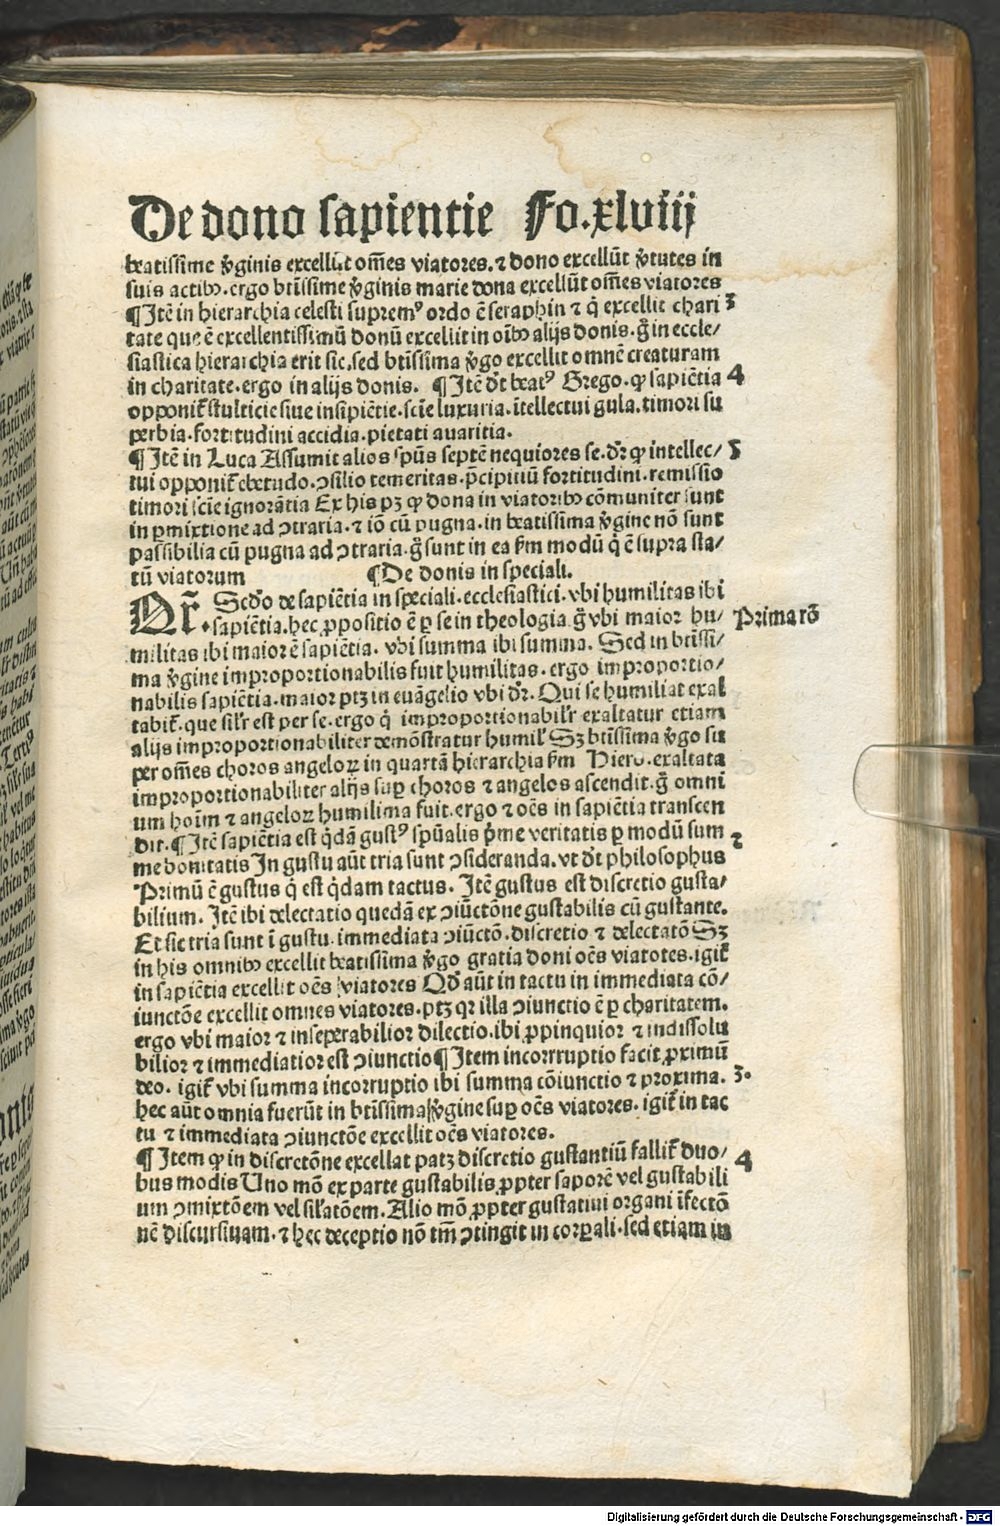 De dono sapientie Fo.xlviij
beatissime v̾ginis excellũt om̃es viatores.⁊ dono excellũt v̾tutes in
suis actibꝫ.ergo btĩssime v̾ginis marie dona excellũt om̃es viatores
¶Itẽ in hierarchia celesti suprem⁹ ordo ẽ seraphin ⁊ q̇ excellit chari 3
tate que ẽ excellentissimũ donũ excellit in oĩbꝫ alijs donis.g̊ in eccle/
siastica hierarchia erit sic.sed btĩssima v̾go excellit omnẽ creaturam
in charitate.ergo in alijs donis. ¶Itẽ dt̃ beat⁹ Grego.ꝙ sapiẽtia 4
opponit̃ stulticie siue insipiẽtie.scĩe luxuria.ĩtellectui gula.timori su
perbia.fortitudini accidia.pietati auaritia.
¶Itẽ in Luca Assumit alios spũs septẽ nequiores se.dr̃ ꝙ intellec/ 5
tui opponit̃ ebetudo.ↄsilio temeritas.p̃cipitiũ fortitudini.remissio
timori scĩe ignorãtia Ex his pꝫ ꝙ dona in viatoribꝫ cõmuniter sunt
in ꝑmixtione ad ↄtraria.⁊ iõ cũ pugna.in beatissima v̾gine nõ sunt
passibilia cũ pugna ad ↄtraria.g̊ sunt in ea ẜm modũ q̇ ẽ supra sta/
tũ viatorum ¶De donis in speciali.
QR̃ Scd̃o de sapiẽtia in speciali.ecclesiastici.vbi humilitas ibi
.sapiẽtia.hec ꝓpositio ẽ ꝑ se in theologia g̊ vbi maior hu/ Prima rõ
militas ibi maior ẽ sapiẽtia. vbi summa ibi summa. Sed in btĩssi/
ma v̾gine improportionabilis fuit humilitas.ergo improportio/
nabilis sapiẽtia.maior ptꝫ in euãgelio vbi dr̃. Qui se humiliat exal
tabit̃.que sil̃r est per se.ergo q̇ improportionabil̃r exaltatur etiam
alijs improportionabiliter demõstratur humil̃ Sꝫ btĩssima v̾go su
per om̃es choros angeloꝝ in quartã hierarchia ẜm Hiero.exaltata
improportionabiliter alijs suꝑ choros ⁊ angelos ascendit.g̊ omni
um hoĩm ⁊ angeloꝝ humilima fuit.ergo ⁊ oẽs in sapiẽtia transcen
dit.¶Itẽ sapiẽtia est q̇dã gust⁹ spũalis p̾me veritatis ꝑ modũ sum 2
me bonitatis In gustu aũt tria sunt ↄsideranda.vt dt̃ philosophus
Primũ ẽ gustus q̇ est q̇dam tactus. Itẽ gustus est discretio gusta/
bilium. Itẽ ibi delectatio quedã ex ↄiũctõne gustabilis cũ gustante.
Et sic tria sunt ĩ gustu.immediata ↄiũctõ.discretio ⁊ delectatõ Sꝫ
in his omnibꝫ excellit beatissima v̾go gratia doni oẽs viatotes.igit̃
in sapiẽtia excellit oẽs viatores Qd̃ aũt in tactu in immediata cõ/
iunctõe excellit omnes viatores.ptꝫ qr illa ↄiunctio ẽ ꝑ charitatem.
ergo vbi maior ⁊ inseperabilior dilectio.ibi ꝓpinquior ⁊ indissolu
bilior ⁊ immediatior est ↄiunctio¶Item incorruptio facit ꝓximũ
deo. igit̃ vbi summa incorruptio ibi summa cõiunctio ⁊ proxima. 3.
hec aũt omnia fuerũt in btĩssima v̾gine suꝑ oẽs viatores.igit̃ in tac
tu ⁊ immediata ↄiunctõe excellit oẽs viatores.
¶Item ꝙ in discretõne excellat patꝫ discretio gustantiũ fallit̃ duo/ 4
bus modis Uno mõ ex parte gustabilis ꝓpter saporẽ vel gustabili
um ↄmixtõem vel sil̃atõem. Alio mõ ꝓpter gustatiui organi ĩfectõ
nẽ discursiuam.⁊ hec deceptio nõ tm̃ ↄtingit in corꝑali.sed etiam in
Digitalisierung gefördert durch die Deutsche Forschungsgemeinschaft - DFG